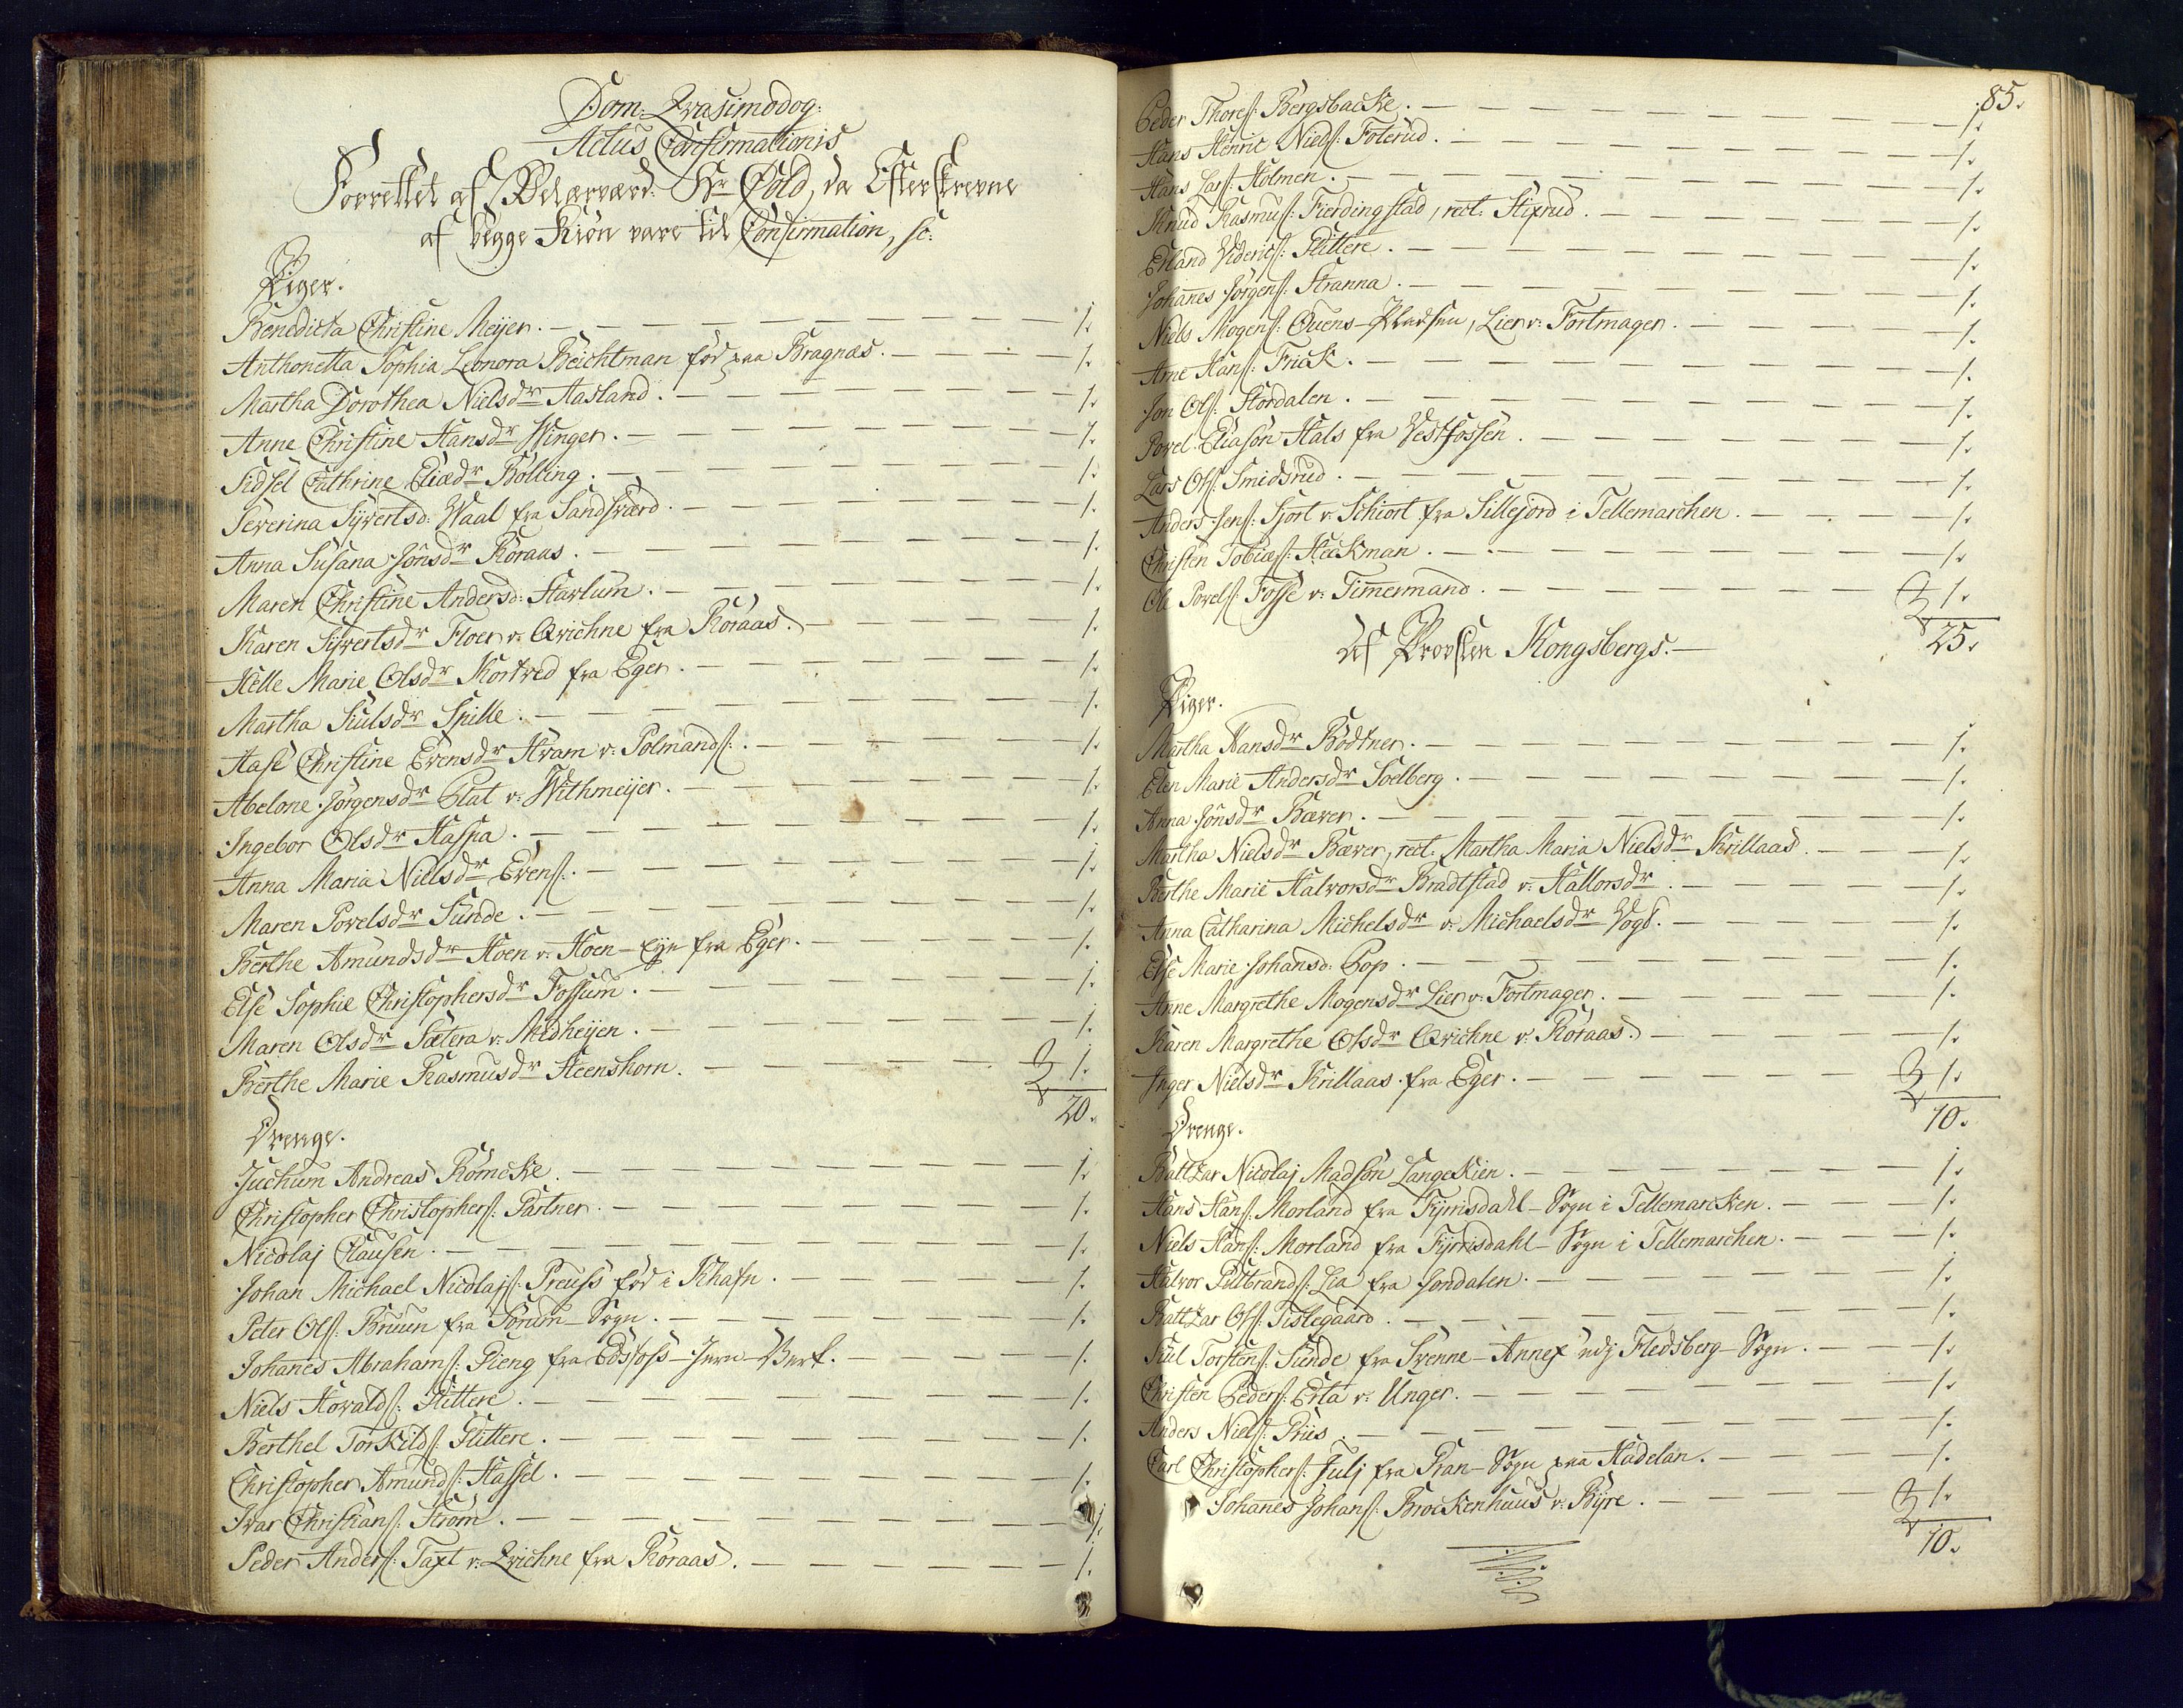 Dom: Qvasimodog:
Actus Confirmationis
Forrettet af Velærværd: Hr Cold, da Efterskrevne
af begge Kiön vare til Confirmation, sc:
Piger.
Benedicta Christine Meijer. 1.
Anthonetta Sophia Leonora Beichtman föd paa Bragnæs. 1.
Martha Dorothea Nielsdr Aasland. 1.
Anne Christine Hansdr Winger. 1.
Sidsel Cathrine Eliædr Bölling. 1.
Severina Syvertsd: Waal fra Sandsværd. 1.
Anna Susana Jönsdr Röraas. 1.
Maren Christine Andersd: Harlum. 1.
Karen Syvertsdr Floer v: Qvichne fra Röraas. 1.
Helle Marie Olsdr Kortved fra Eger. 1.
Martha Siulsdr Spille. 1.
Aase Christine Evensdr Hvam v: Polmands: 1.
Abelone Jörgensdr Plat v: Withmeijer. 1.
Ingebor Olsdr Haspa. 1.
Anna Maria Nielsdr Evens: 1.
Maren Povelsdr Sunde. 1.
Berthe Amundsdr Hoen v: Hoen-Eje fra Eger. 1.
Else Sophie Christophersdr Fossum. 1.
Maren Olsdr Sætera v: Midheijen. 1.
Berthe Marie Rasmusdr Steenshorn. 1.
20.
Drenge.
Juchum Andreas Römcke. 1.
Christopher Christophers: Partner. 1.
Nicolaj Clausen. 1.
Johan Michael Nicolajs: Preuss föd i Khafn. 1.
Peter Ols: Bruun fra Sörum-Sogn. 1.
Johanes Abrahams: Pieng fra Edsfoss-Jern-Verk. 1.
Niels Hovalds: Flittere. 1.
Berthel Torkilds: Flittere. 1.
Christopher Amunds: Hassel. 1.
Ivar Christians: Ström. 1.
Peder Anders: Taxt v: Qvichne fra Röraas. 1.
85.
Peder Thores: Bergsbacke. 1.
Hans Henric Niels: Foterud. 1.
Hans Lars: Holmen. 1.
Knud Rasmus: Fierdingstad, rect: Stixrud. 1.
Erland Viderics: Flittere. 1.
Johanes Jörgens: Stranna. 1.
Niels Mogens: Ovens-Pladsen, Lier v: Fortmager. 1.
Arne Hans: Frick. 1.
Jon Ols: Stordalen. 1.
Povel Eliasön Hals fra Vestfossen. 1.
Lars Ols: Smidsrud. 1.
Anders Jens: Hjort v: Schiort fra Sillejord i Tellemarchen. 1.
Christen Tobiæs: Heckman. 1.
Ole Povels: Fosse v: Timermand. 1.
25.
Af Provsten Kongsbergs.
Piger.
Martha Hansdr Bödtner. 1.
Elen Marie Andersdr Soelberg. 1.
Anna Jönsdr Bæver. 1.
Martha Nielsdr Bæver, rect. Martha Maria Nielsdr Krillaas. 1.
Berthe Marie Halvorsdr Bradtstad v: Hallorsdr 1.
Anna Catharina Michelsdr v: Michaelsdr Vogt. 1.
Else Marie Johansd: Pop. 1.
Anne Margrethe Mogensdr Lier v: Fortmager. 1.
Karen Margrethe Olsdr Qvichne v: Röraas. 1.
Inger Nielsdr Krillaas fra Eger. 1.
10.
Drenge.
Baltzar Nicolaj Madsön Langeskien. 1.
Hans Hans: Morland fra Fyrrisdahl-Sogn i Tellemarcken. 1.
Niels Hans: Morland fra Fyrrisdahl-Sogn i Tellemarchen. 1.
Halvor Gulbrands: Lia fra Jondalen. 1.
Baltzar Ols: Tislegaard. 1.
Siul Torstens: Sunde fra Svenne-Annex udj Fledsberg-Sogn. 1.
Christen Peders: Erta v: Unger. 1.
Anders Niels: Priis. 1.
Carl Christophers: Julj fra Gran-Sogn paa Hadelan. 1.
Johanes Johans: Brockenhuus v: Byre. 1.
10.